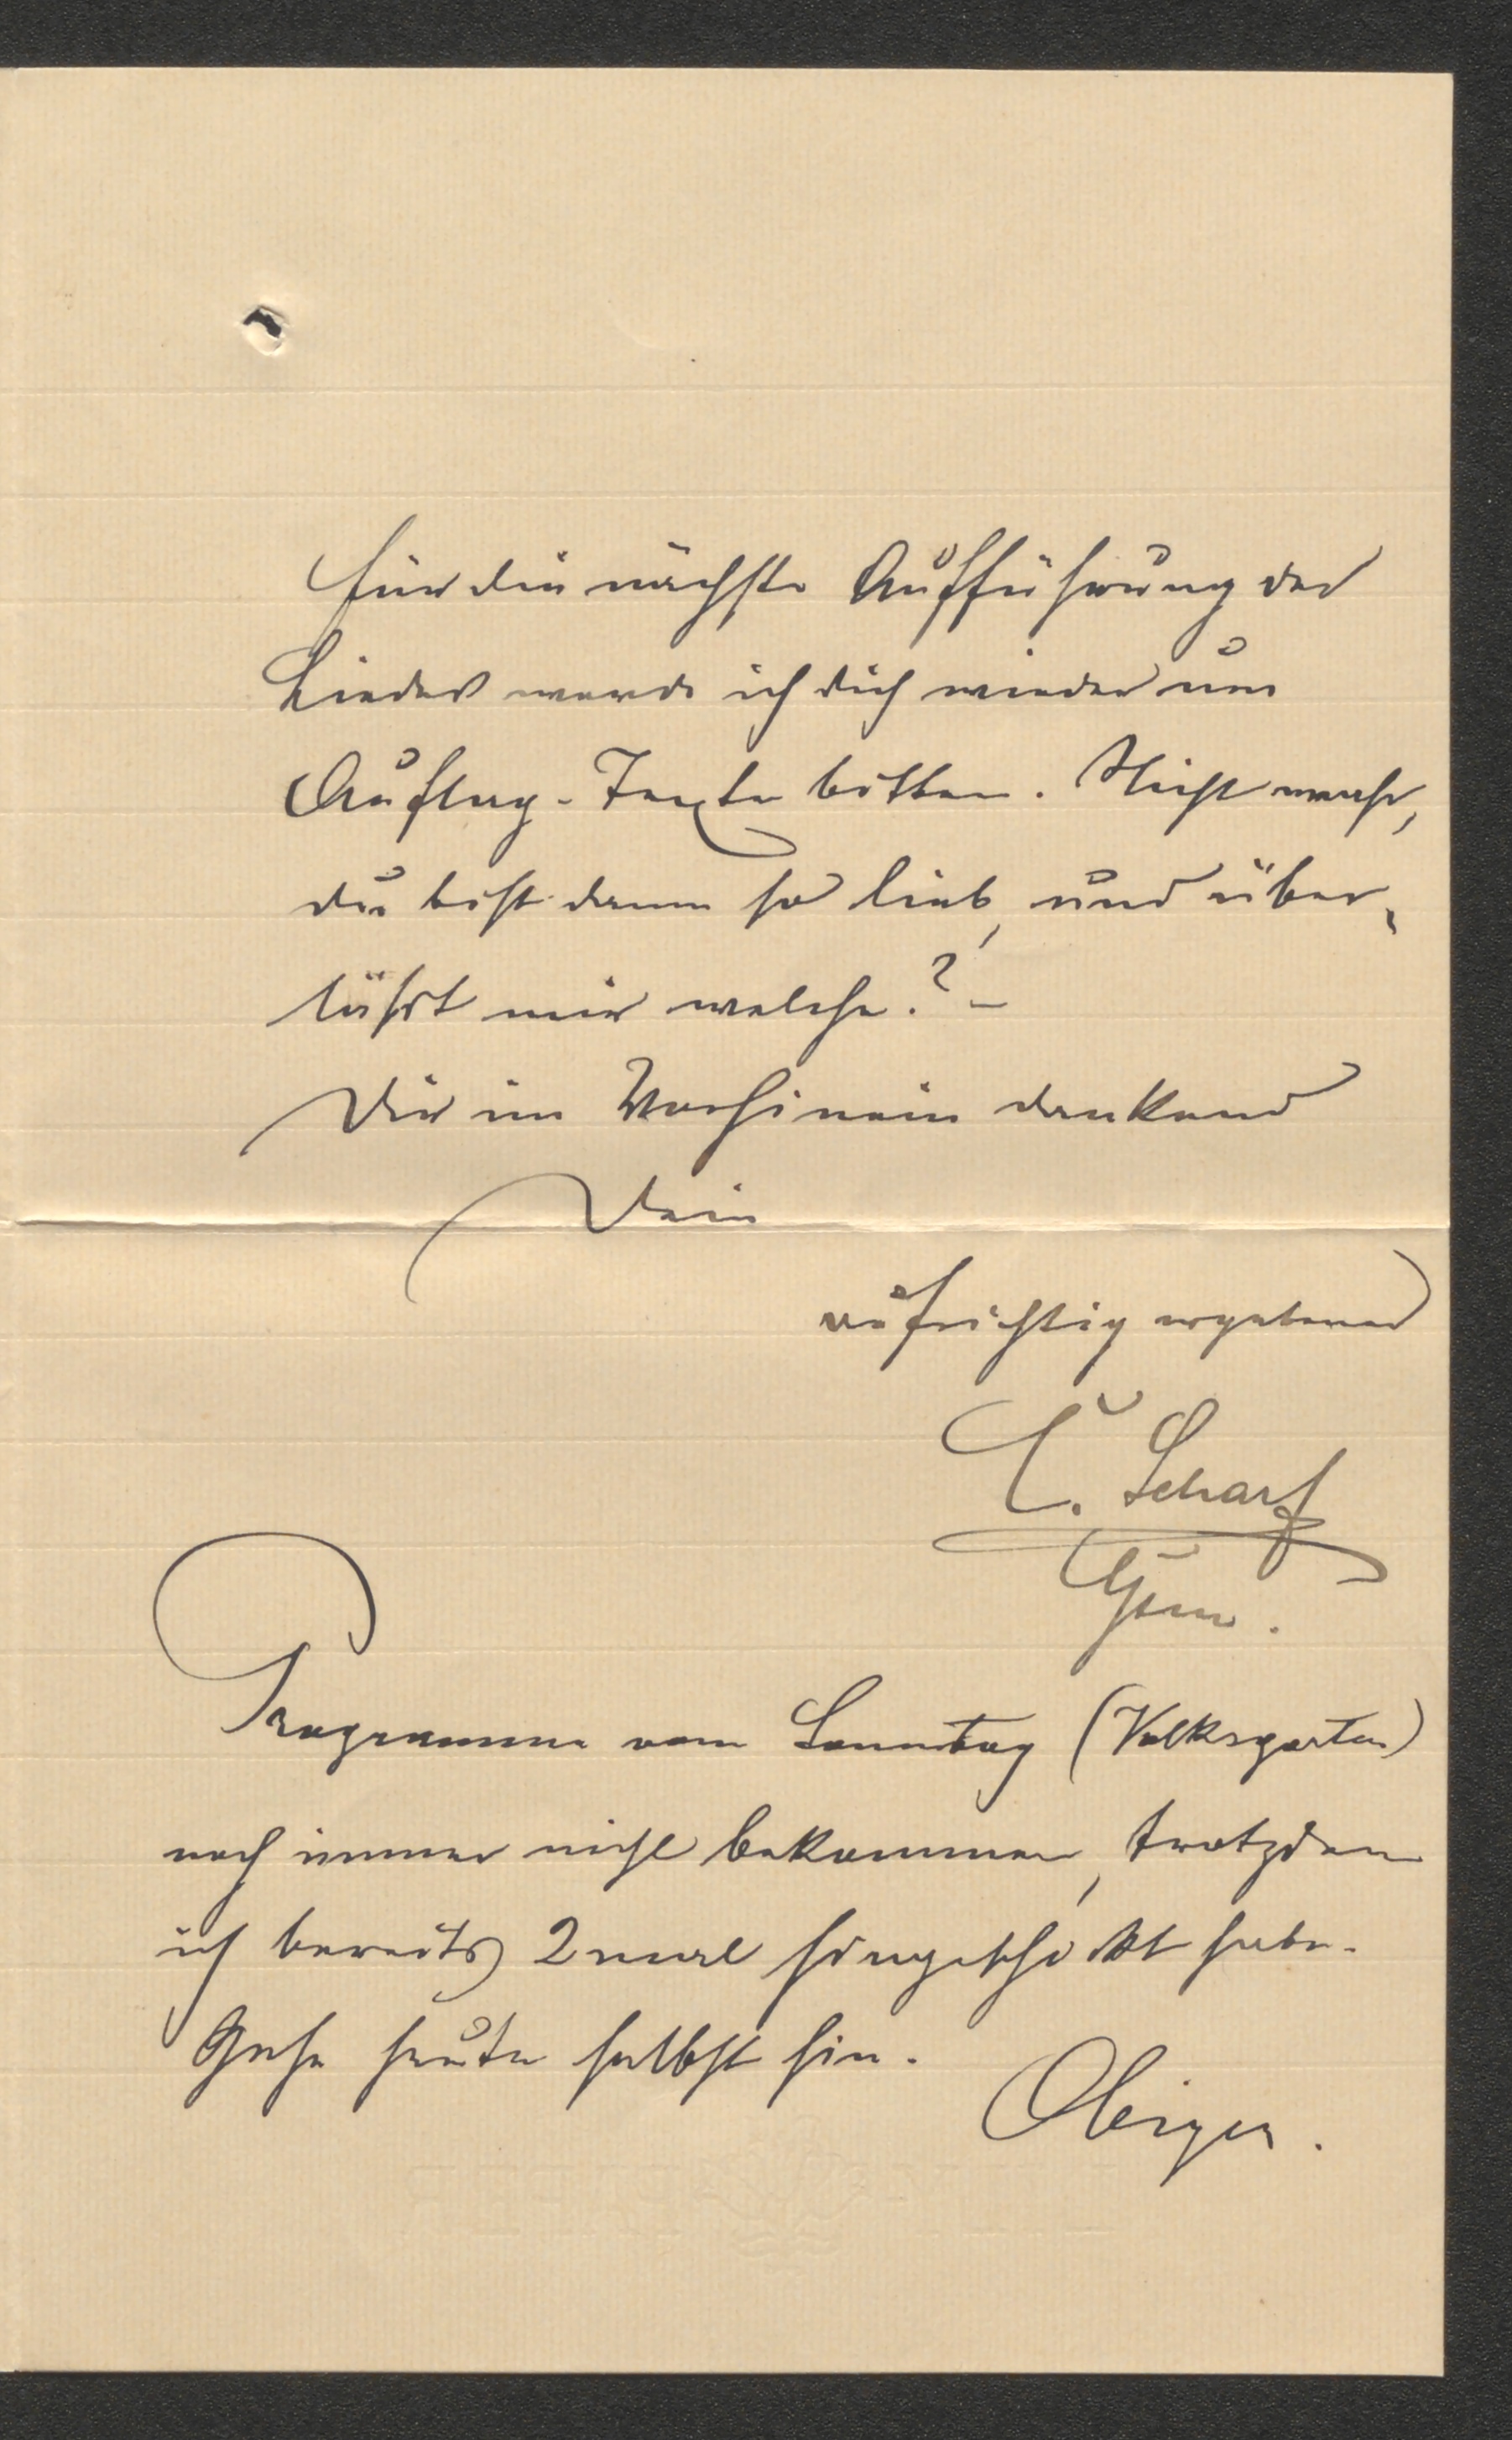 Für die nächste Aufführung des
Liedes werde ich dich wieder um
Auflag-Texte bitten. Nicht wahr,
du bist dann so lieb, und über-
läßt mir welche? –
Dir im Vorhinein dankend
Dein
aufrichtig ergebener
E. Scharf
Programme vom Sonntag (Volksgarten)
noch immer nicht bekommen, trotzdem
ich bereits 2mal hingeschickt habe.
Gehe heute selbst hin.
Obiger.